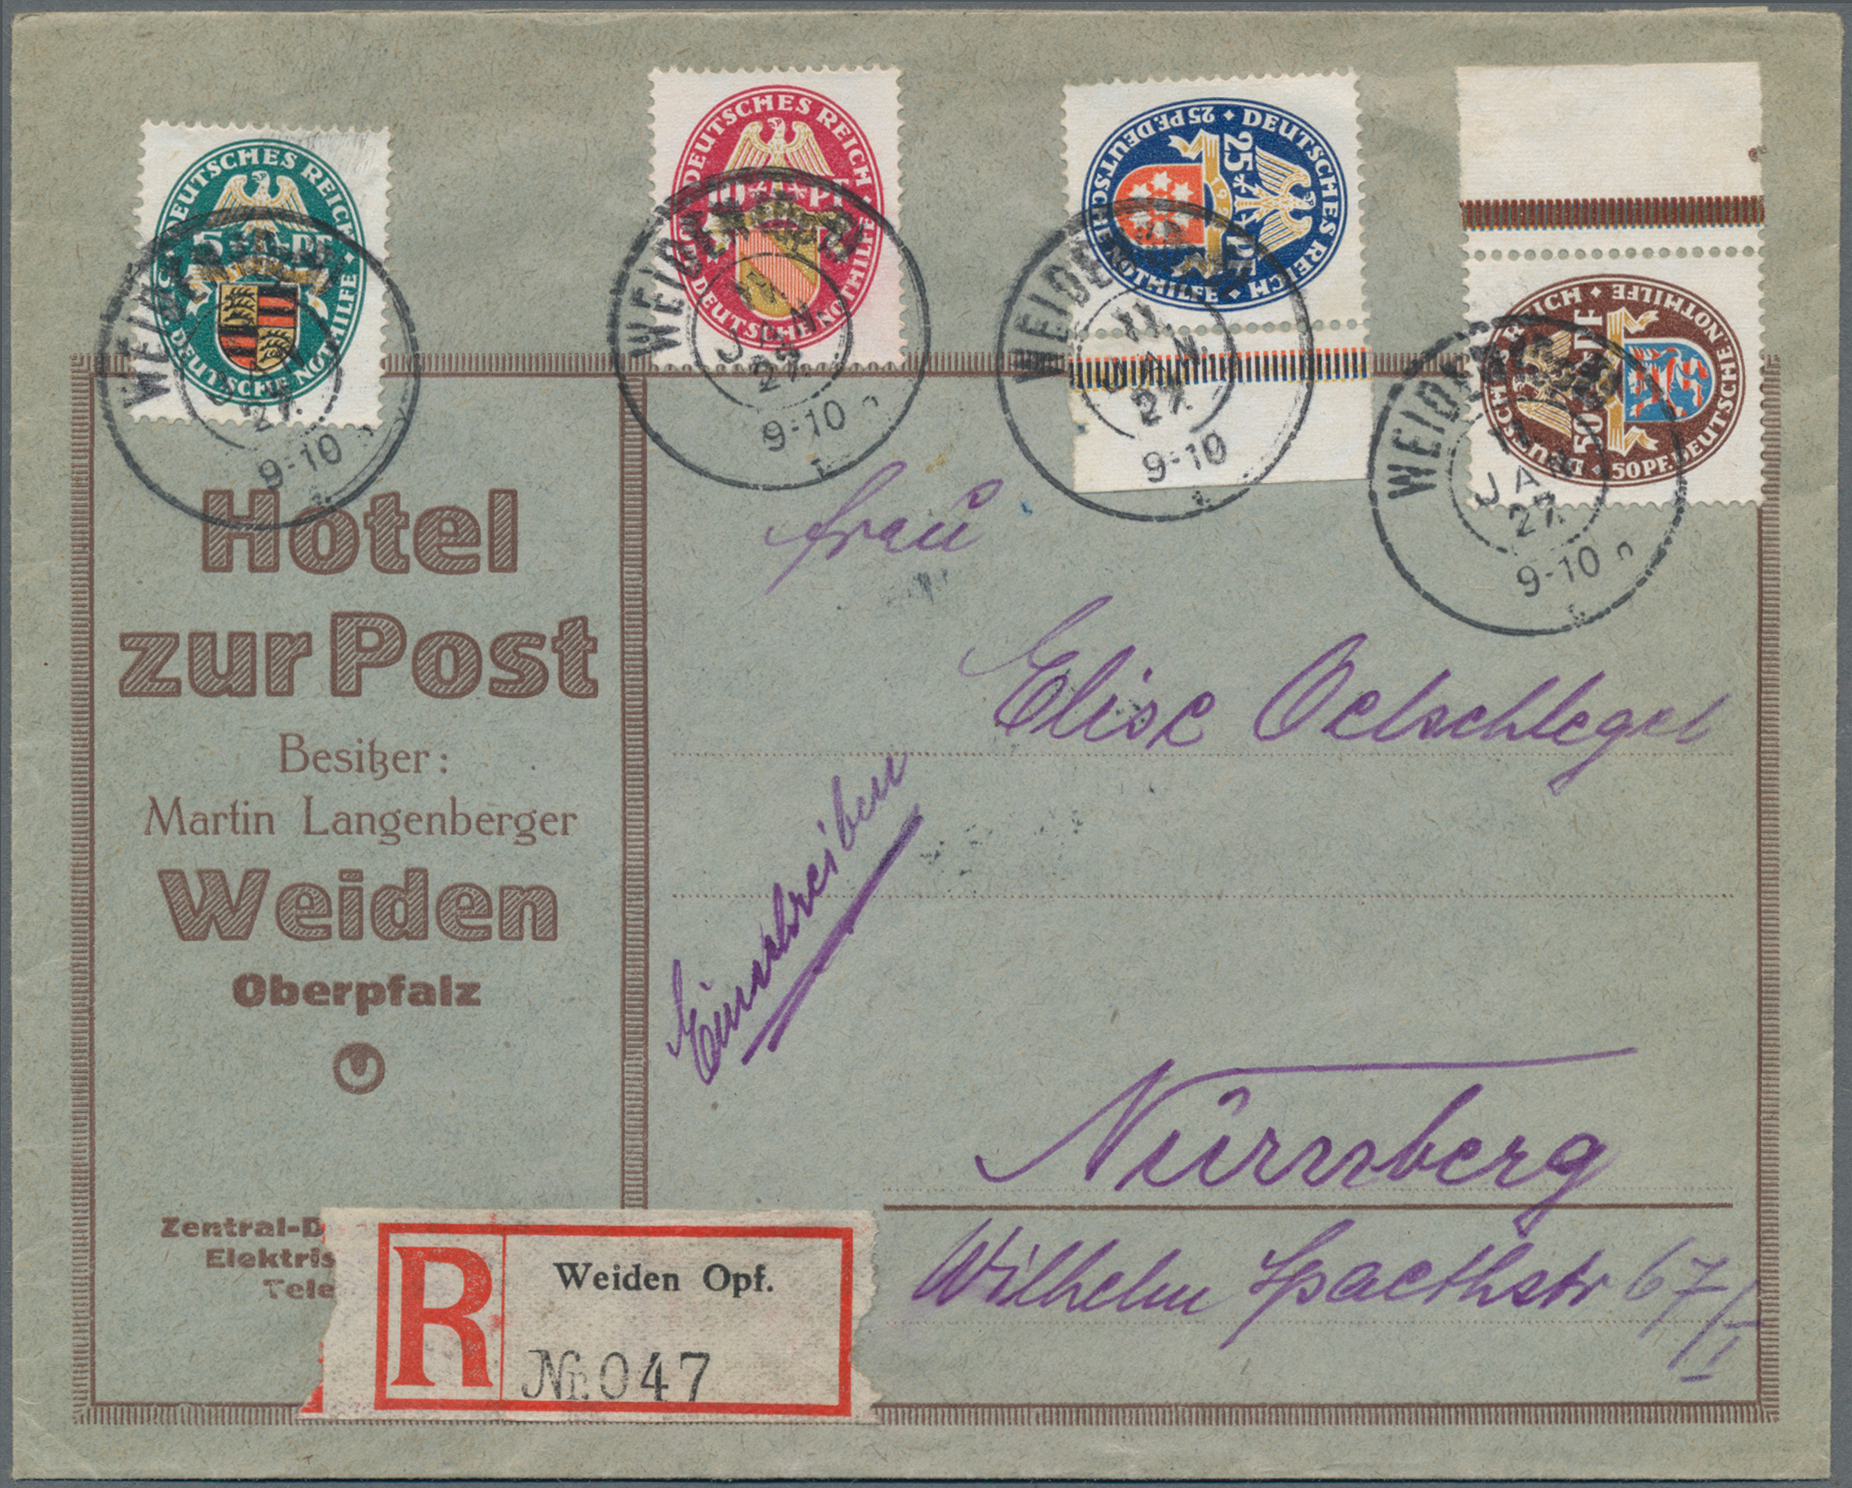 DEUTSCHES REICH
5 Pf
DEUTSCHE NOTHILFE
DEUTSCHES REICH
10 Pf
DEUTSCHE NOTHILFE
25 PF. DEUTSCHE NOTHILFE
DEUTSCHES REICH
25 PF
50 PF. DEUTSCHE NOTHILFE
DEUTSCHES REICH
50 PF
WEIDEN
27.
9-10
WEIDEN
JAN.
27.
9-10
WEIDEN
11
JAN.
27.
9-10
WEIDEN
JAN
27.
9-10
Hotel
zur Post
Besitzer:
Martin Langenberger
Weiden
Oberpfalz
Zentral-
Elektris
Tele
Frau
Elise Oelschlegel
Einschreiben
Nürnberg
Wilhelm Spaethstr 67/I
R
Weiden Opf.
Nr. 047